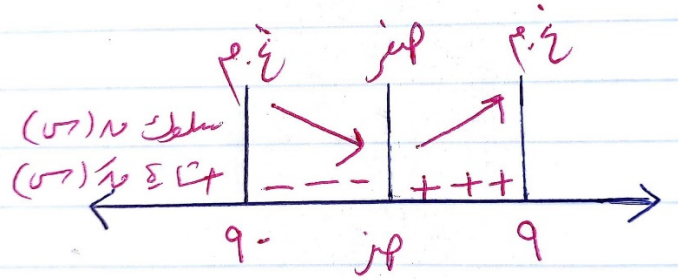 غ.م صفر غ.م
سلوك ق(س)
إشارة قَ(س) − − − + + +
٩- صفر ٩